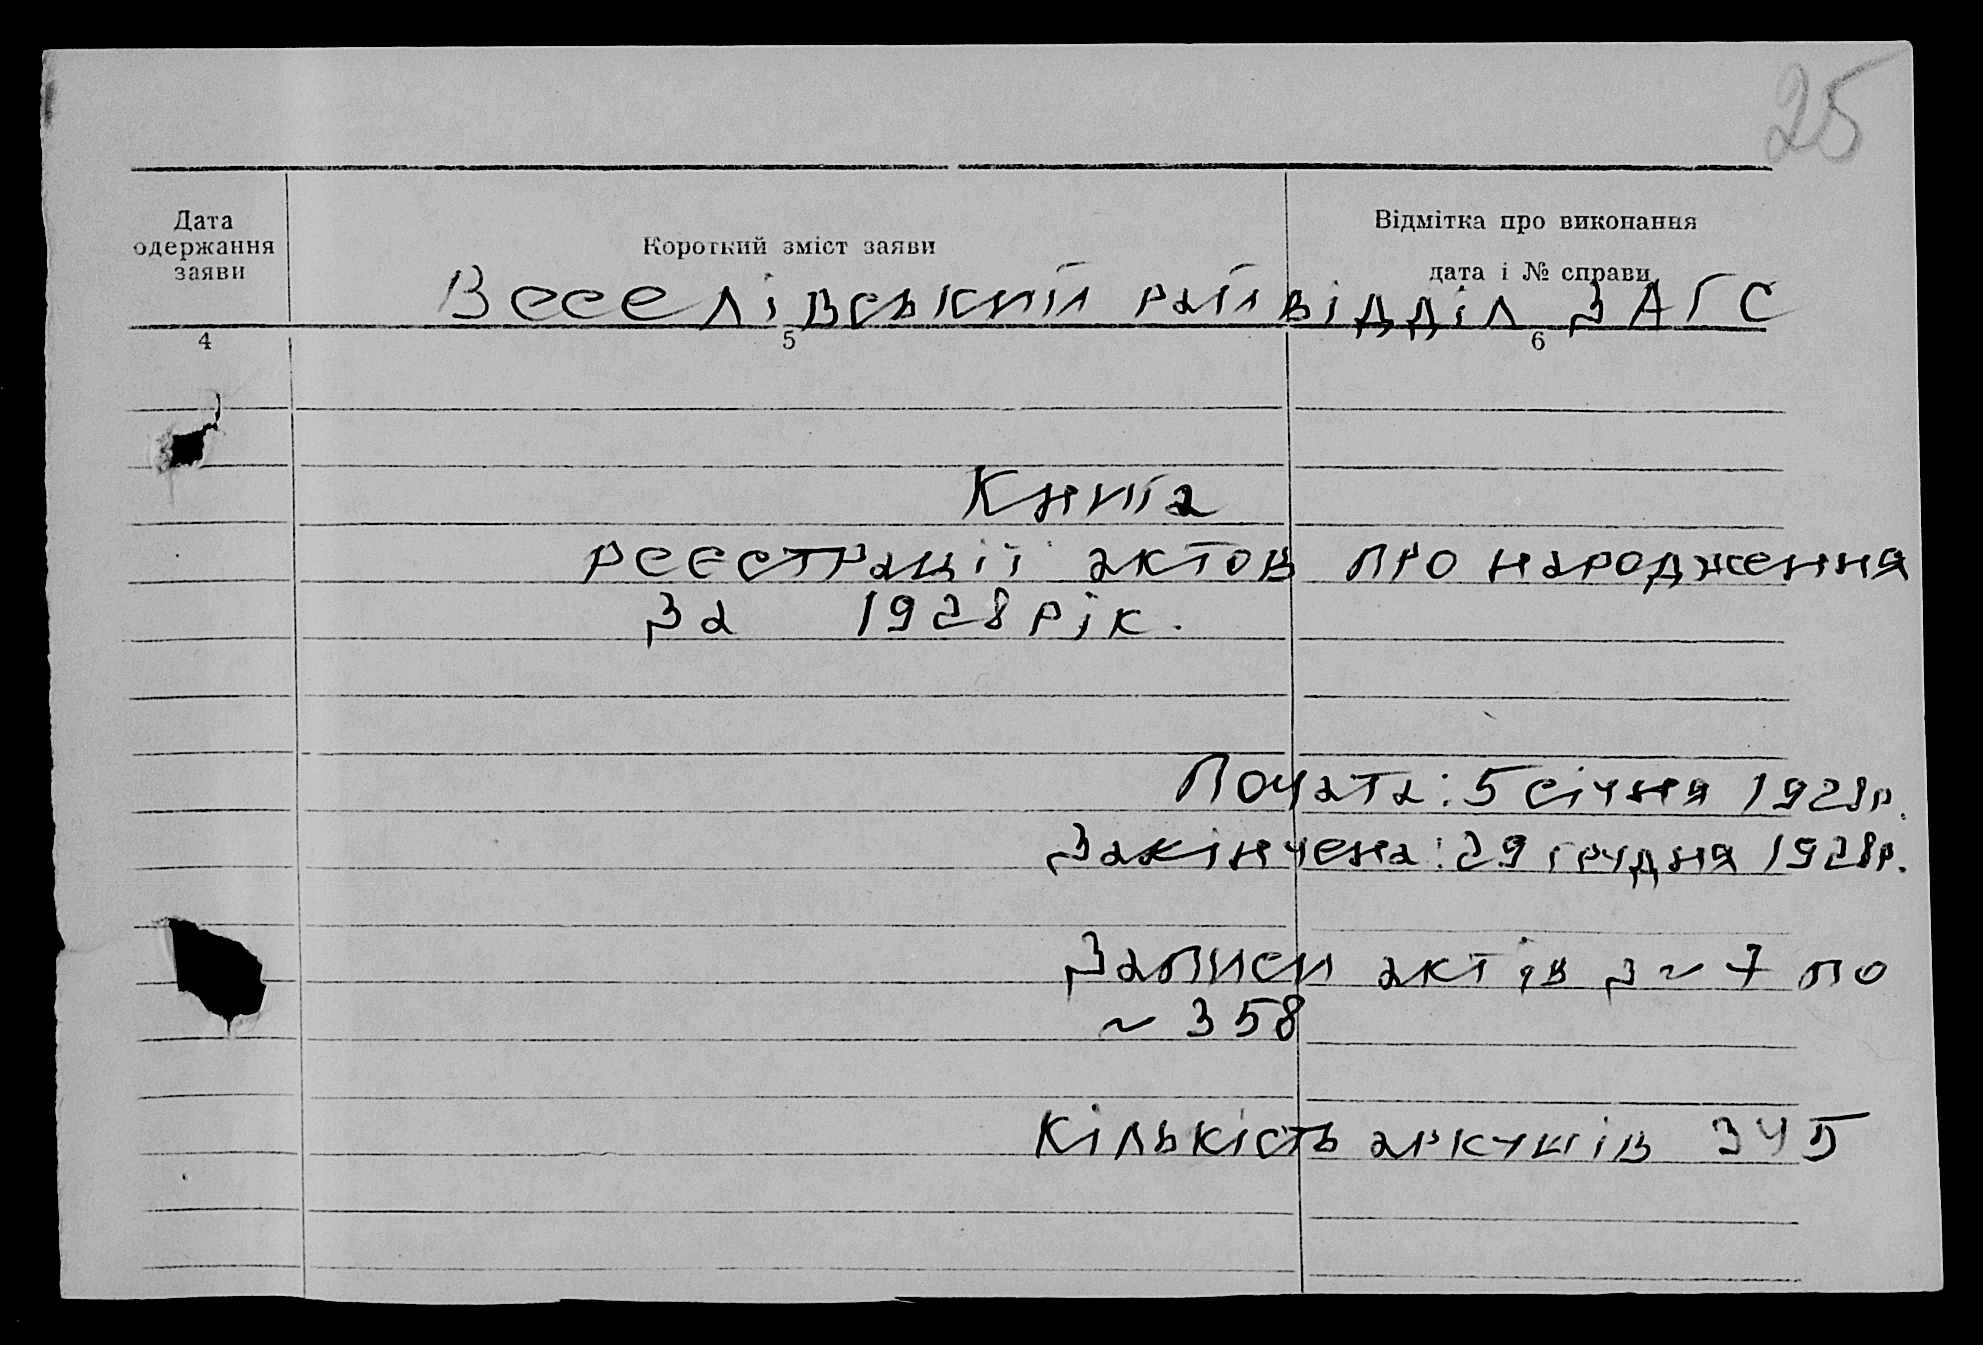 25
Дата
одержання
заяви
Короткий зміст заяви
Відмітка про виконання
дата і № справи
Веселівський райвідділ ЗАГС
4
5
6
Книга
реєстрації актов про народження
за 1928 рік.
Почата: 5 січня 1928р.
Закінчена: 29 грудня 1928р.
Записи актів з ~ 7 по
~ 358
Кількість аркушів 345